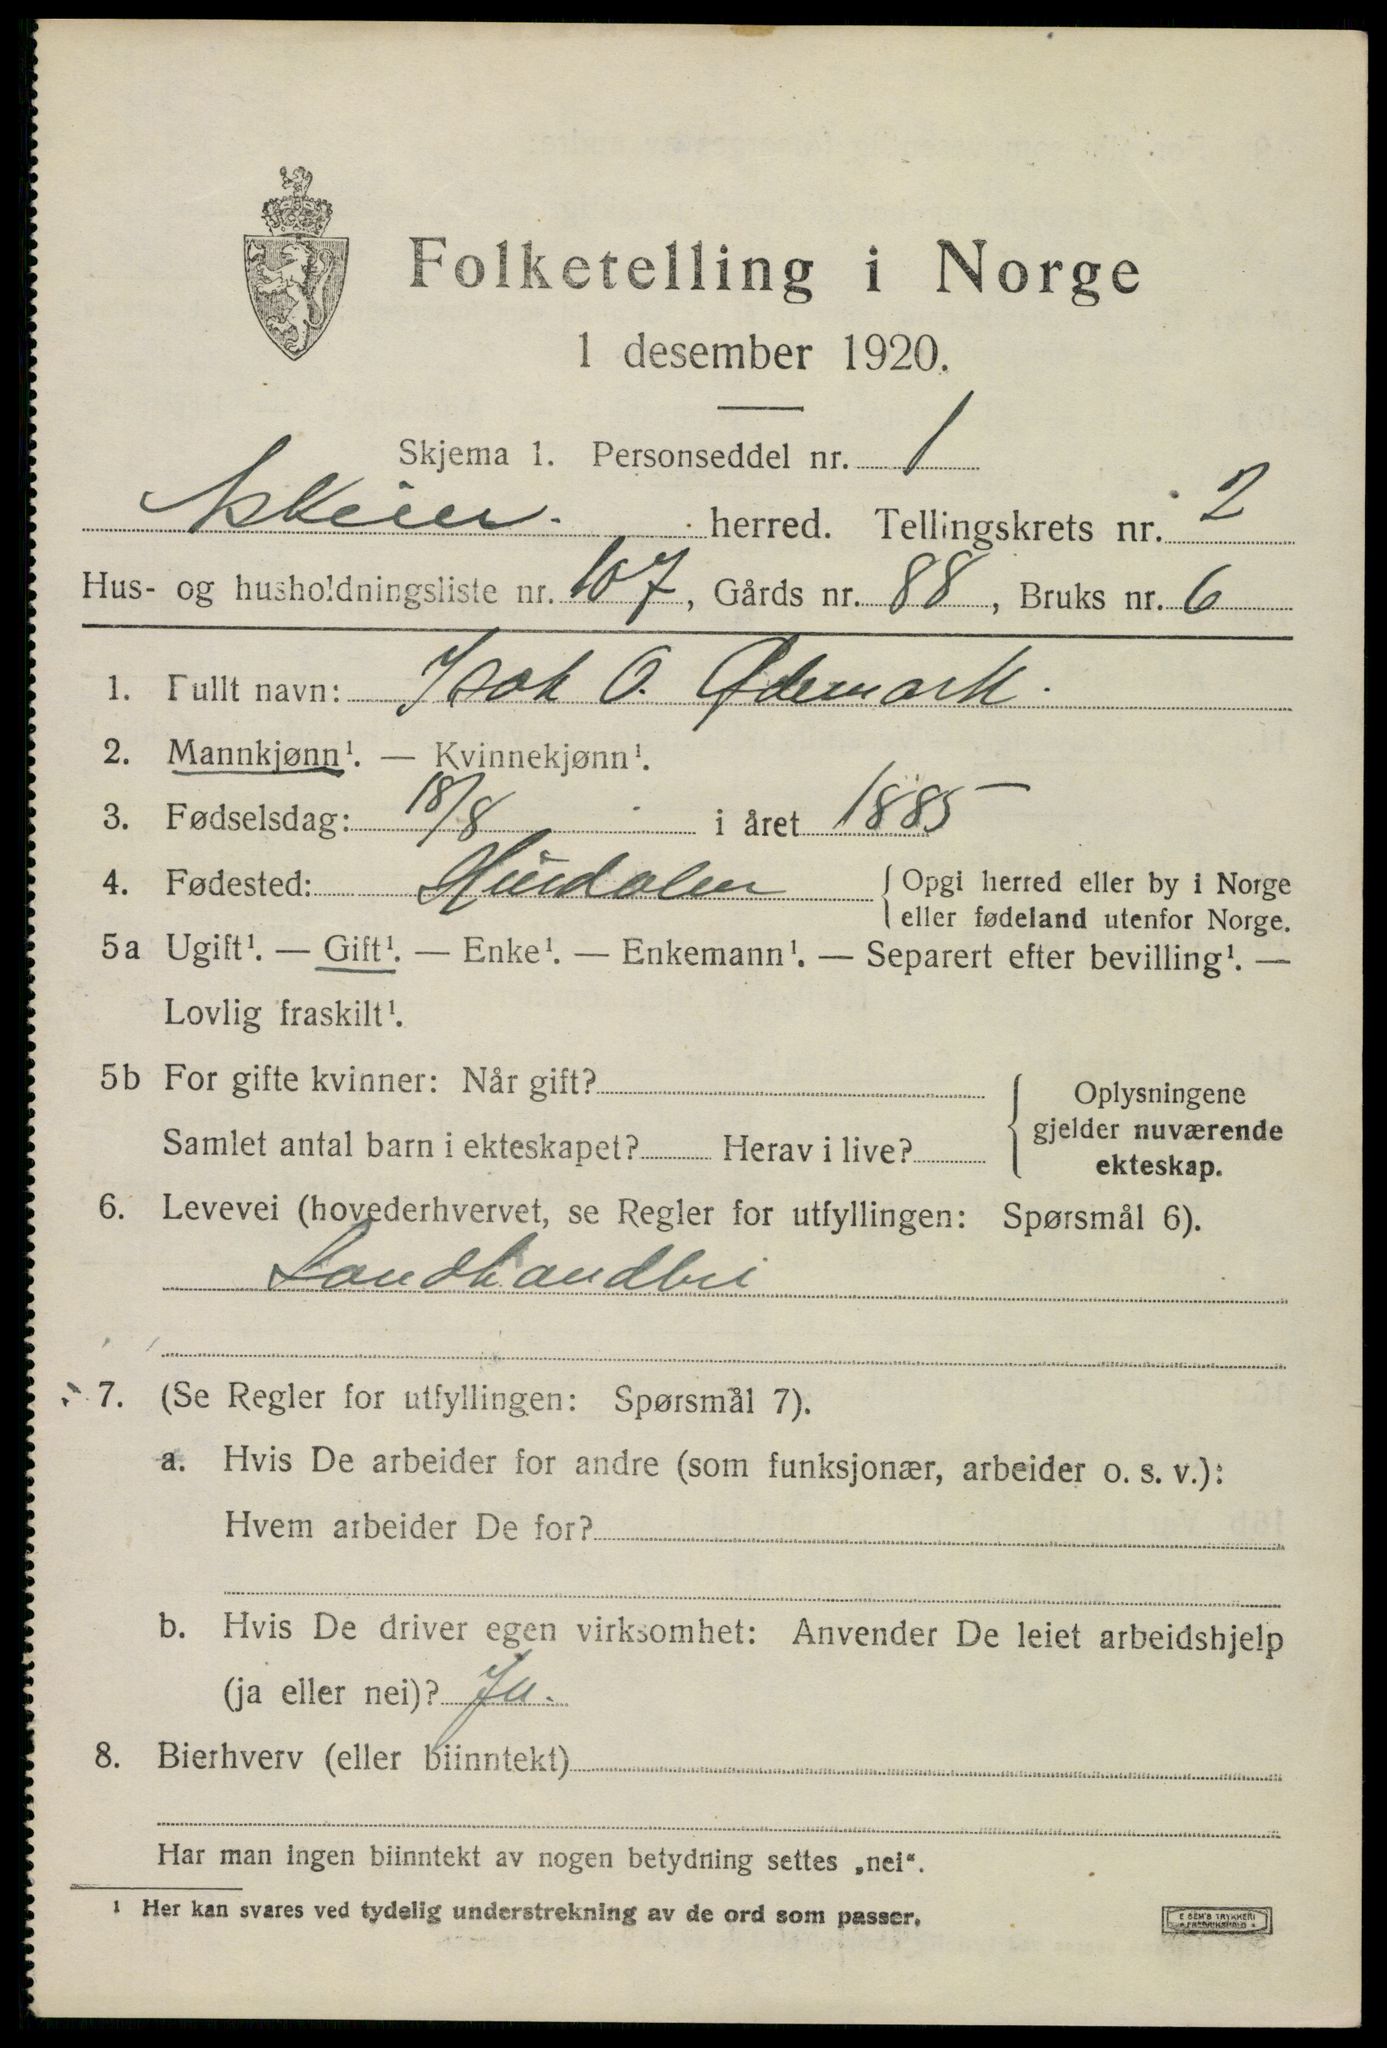 Folketelling i Norge
1 desember 1920.
Skjema 1. Personseddel nr. 1
Askim. herred. Tellingskrets nr. 2
Hus- og husholdningsliste nr. 107, Gårds nr. 88, Bruks nr. 6
1. Fullt navn: Isak O. Ødemark.
2. Mannkjønn¹. — Kvinnekjønn¹.
3. Fødselsdag: 18/8 i året 1885
4. Fødested: Hurdalen { Opgi herred eller by i Norge
eller fødeland utenfor Norge.
5a Ugift¹. — Gift¹. — Enke¹. — Enkemann¹. — Separert efter bevilling¹. —
Lovlig fraskilt¹.
5b For gifte kvinner: Når gift?
Samlet antal barn i ekteskapet? Herav i live?
{ Oplysningene
gjelder nuværende
ekteskap.
6. Levevei (hovederhvervet, se Regler for utfyllingen: Spørsmål 6).
Landhandleri
7. (Se Regler for utfyllingen: Spørsmål 7).
a. Hvis De arbeider for andre (som funksjonær, arbeider o. s. v.):
Hvem arbeider De for?
b. Hvis De driver egen virksomhet: Anvender De leiet arbeidshjelp
(ja eller nei)? Ja.
8. Bierhverv (eller biinntekt)
Har man ingen biinntekt av nogen betydning settes „nei“.
¹ Her kan svares ved tydelig understrekning av de ord som passer.
E SEM'S TRYKKERI
FREDRIKSHALD